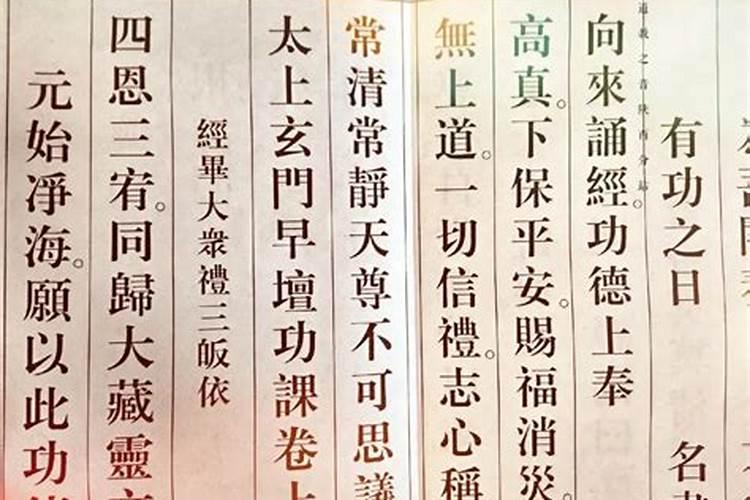 有功之日　名
向來誦經。功德上奉
高真。下保平安。賜福消災。
無上道。一切信禮。志心稱
常清常靜天尊不可思議
太上玄門早壇功課卷上
經畢大衆禮三皈依
四恩三宥。同歸大藏靈
元始凈海。願以此功